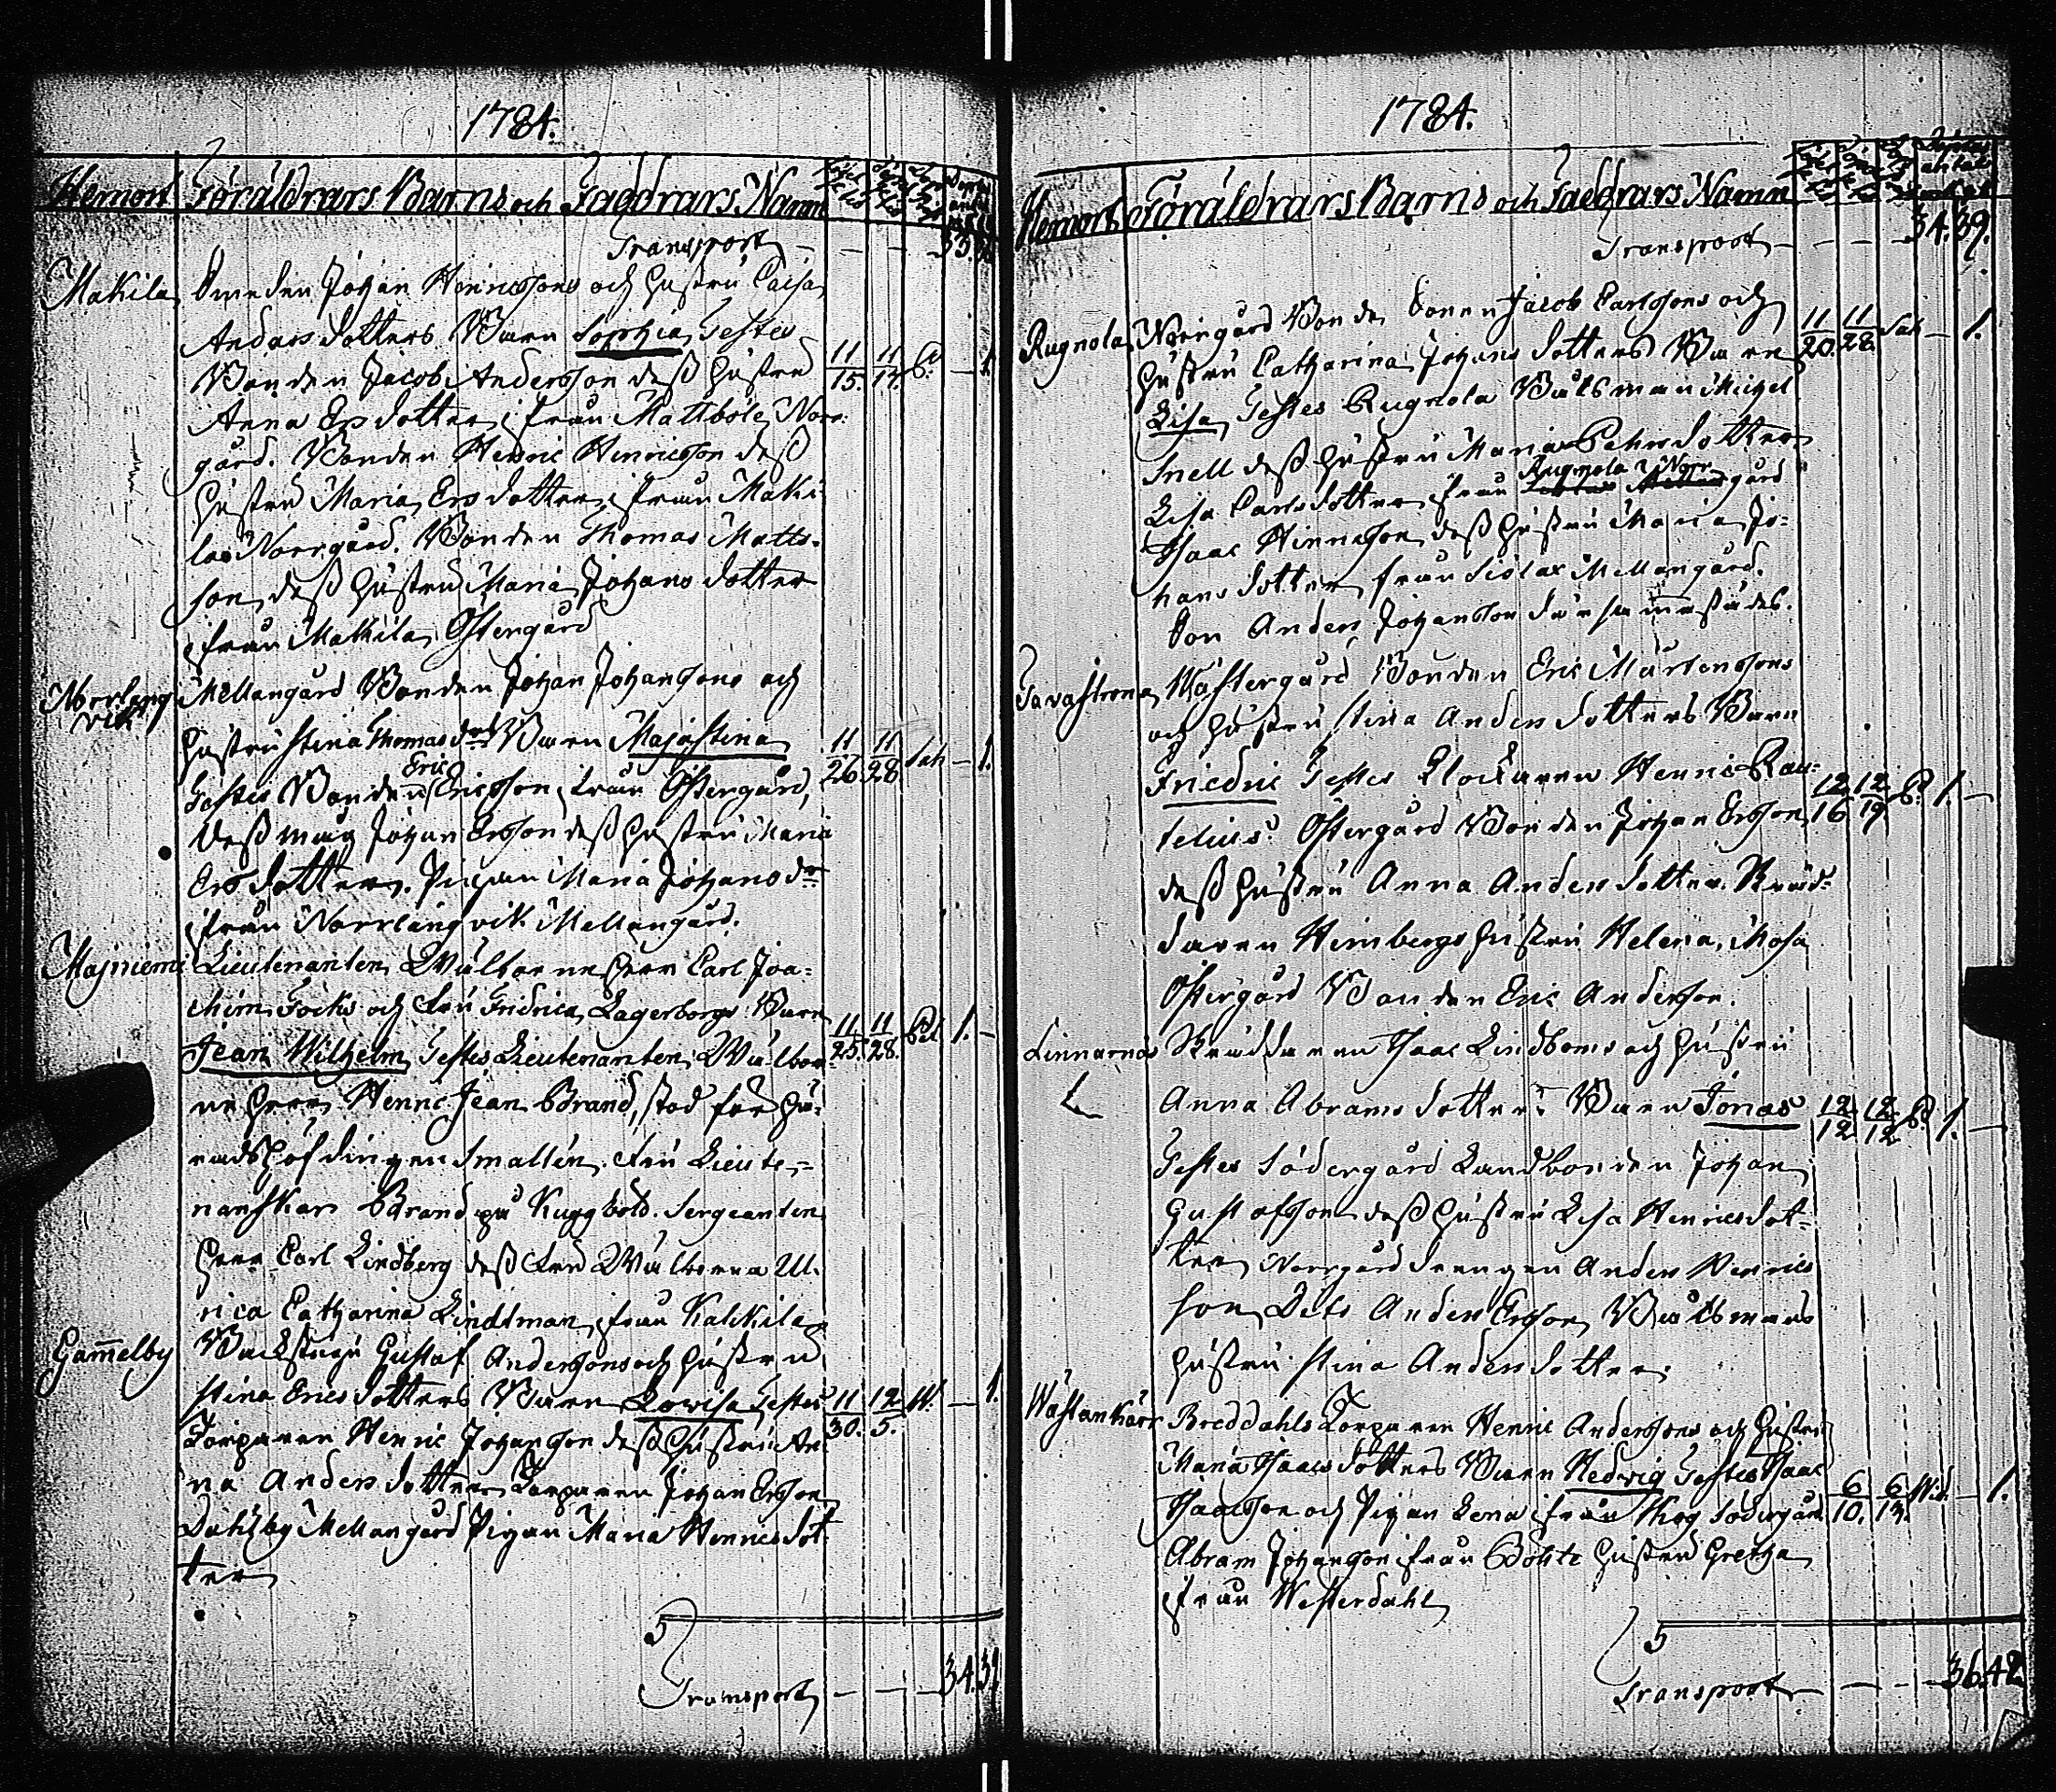 1784.
Hemort Föräldrars Barns och Faddrars Namn
Transport — — — 33.
Makila Smeden Johan Henricssons och hustru Caisa
Anders dotters Barn Sophia, Testes
Bonden Jacob Andersson dess hustru 11/15. 11/17. — 1
Anna Ersdotter, från Mattböle Norr-
gård. Bonden Henric Henricsson dess
hustru Maria Ersdotter, från Maki-
la Norrgård. Bonden Thomas Matts-
son, dess hustru Maria Johans dotter
från Makila Östergård
Norrlång vik Mellangård Bonden Johan Johanssons och
hustru Stina Thomas drs Barn Majastina 11/26 11/28 Sah — 1.
Testes Bonden Eric Ericsson från Östergård,
dess måg Johan Ersson dess hustru Maria
Ers dotter. Pigan Maria Johans dr
från Norrlångvik Mellangård.
Majniemi Lieutenanten Wälborne Herr Carl Joa-
chim Töcks och Fru Fridrica Lagerborgs Barn
Jean Wilhelm Testes Lieutenanten Wälbor- 11/25. 11/28. 1. —
ne Herr Henric Jean Brand, stod för Hä-
radshöfdingen Smallén. Fru Lieute-
nanskan Brand på Kuggböle. Sergeanten
Herr Carl Lindberg dess Fru Wälborna Ul-
rica Catharina Lindtman, från Kalkila
Gam̄elby Backstugu Gustaf Anderssons och hustru
Stina Erics dotters Barn Lovisa Testes 11/30. 12/5. W. — 1.
Torparen Henric Johansson dess hustru An-
na Anders dotter Torparen Johan Ersson
Dahlby Mellangård Pigan Maria Henricsdot-
ter
5
Transport — — — 34.39
1784.
Hemort Föräldrars Barns och Faddrars Namn
Transport — — — 34.39.
Rugnola Norrgård Bonde Sonen Jacob Carlssons och
hustru Catharina Johans dotters Barn 11/20. 11/28. Sah — 1.
Lisa, Testes Rugnola Båtsman Michel
Snell dess hustru Maria Pehrsdotter
Lisa Carlsdotter från Rugnola Norrgård
Isaac Hinricsson dess hustru Maria Jo-
hansdotter från Siölax Mellangård.
Son Anders Johansson därsam̄astädes.
Tavastrona Wästergård Bonden Eric Mårtenssons
och hustru Stina Anders dotters Barn
Friedric Testes Klockaren Henric Rau-
telius. Östergård Bonden Johan Ersson 12/16 12/19 1. —
dess hustru Anna Anders dotter. Skräd-
daren Heinbergs hustru Helena, Mosa
Östergård Bonden Eric Andersson.
Linnarnäs Skräddaren Isaac Lindboms och hustru
Anna Abrams dotters Barn Jonas 12/12 12/12 1. —
Testes Södergård Landbonden Johan
Gustafsson dess hustru Lisa Henricsdot-
ter Norrgård drengen Anders Henrics
son, Dito Anders Ersson, Båtsmans
hustru Stina Andersdotter.
Wästankärr Breddahls Torparen Henric Anderssons och hustru
Maria Isaacs dotters Barn Hedvig Testes Isaac
Isaacsson och Pigan Lena från Skog Södergård 6/10. 6/13. Wid. — 1.
Abram Johansson från Böhle hustru Gretha
från Westerdahl
5
Transport — — — 36.42